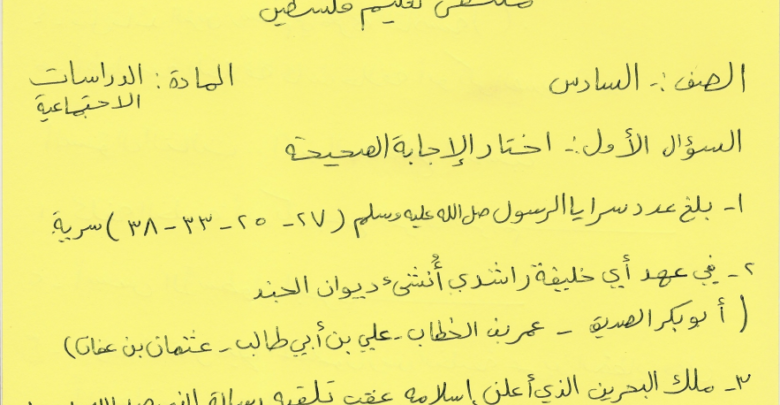 ملتقى تعليم فلسطين
الصف :- السادس المادة : الدراسات
الاجتماعية
السؤال الأول :- اختار الإجابة الصحيحة
١- بلغ عدد سرايا الرسول صل الله عليه وسلم ( ٢٧ - ٢٥ - ٣٣ - ٣٨ ) سرية
٢- في عهد أي خليفة راشدي أُنشئ ديوان الجند
( أبو بكر الصديق - عمر بن الخطاب - علي بن أبي طالب - عثمان بن عفان )
٣- ملك البحرين الذي أعلن إسلامه عقب تلقيه رسالة